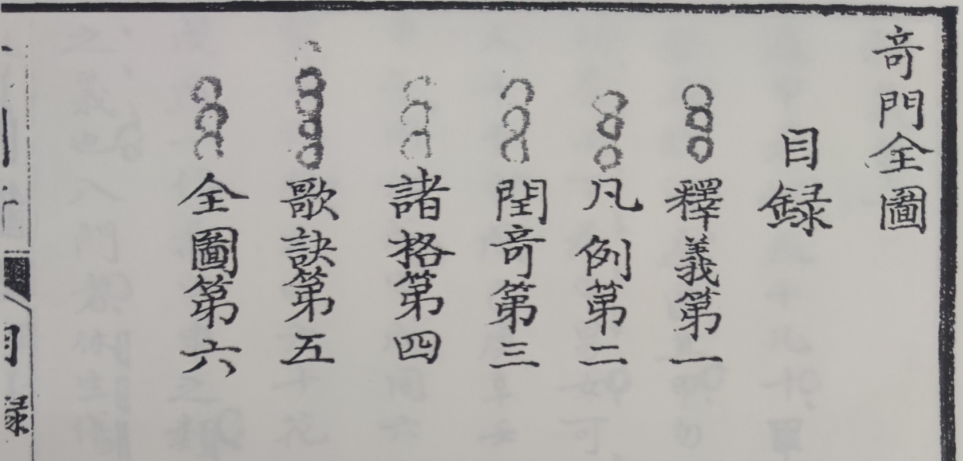 奇門全圖
目録
釋義第一
凡例第二
閏奇第三
諸格第四
歌訣第五
全圖第六
目録